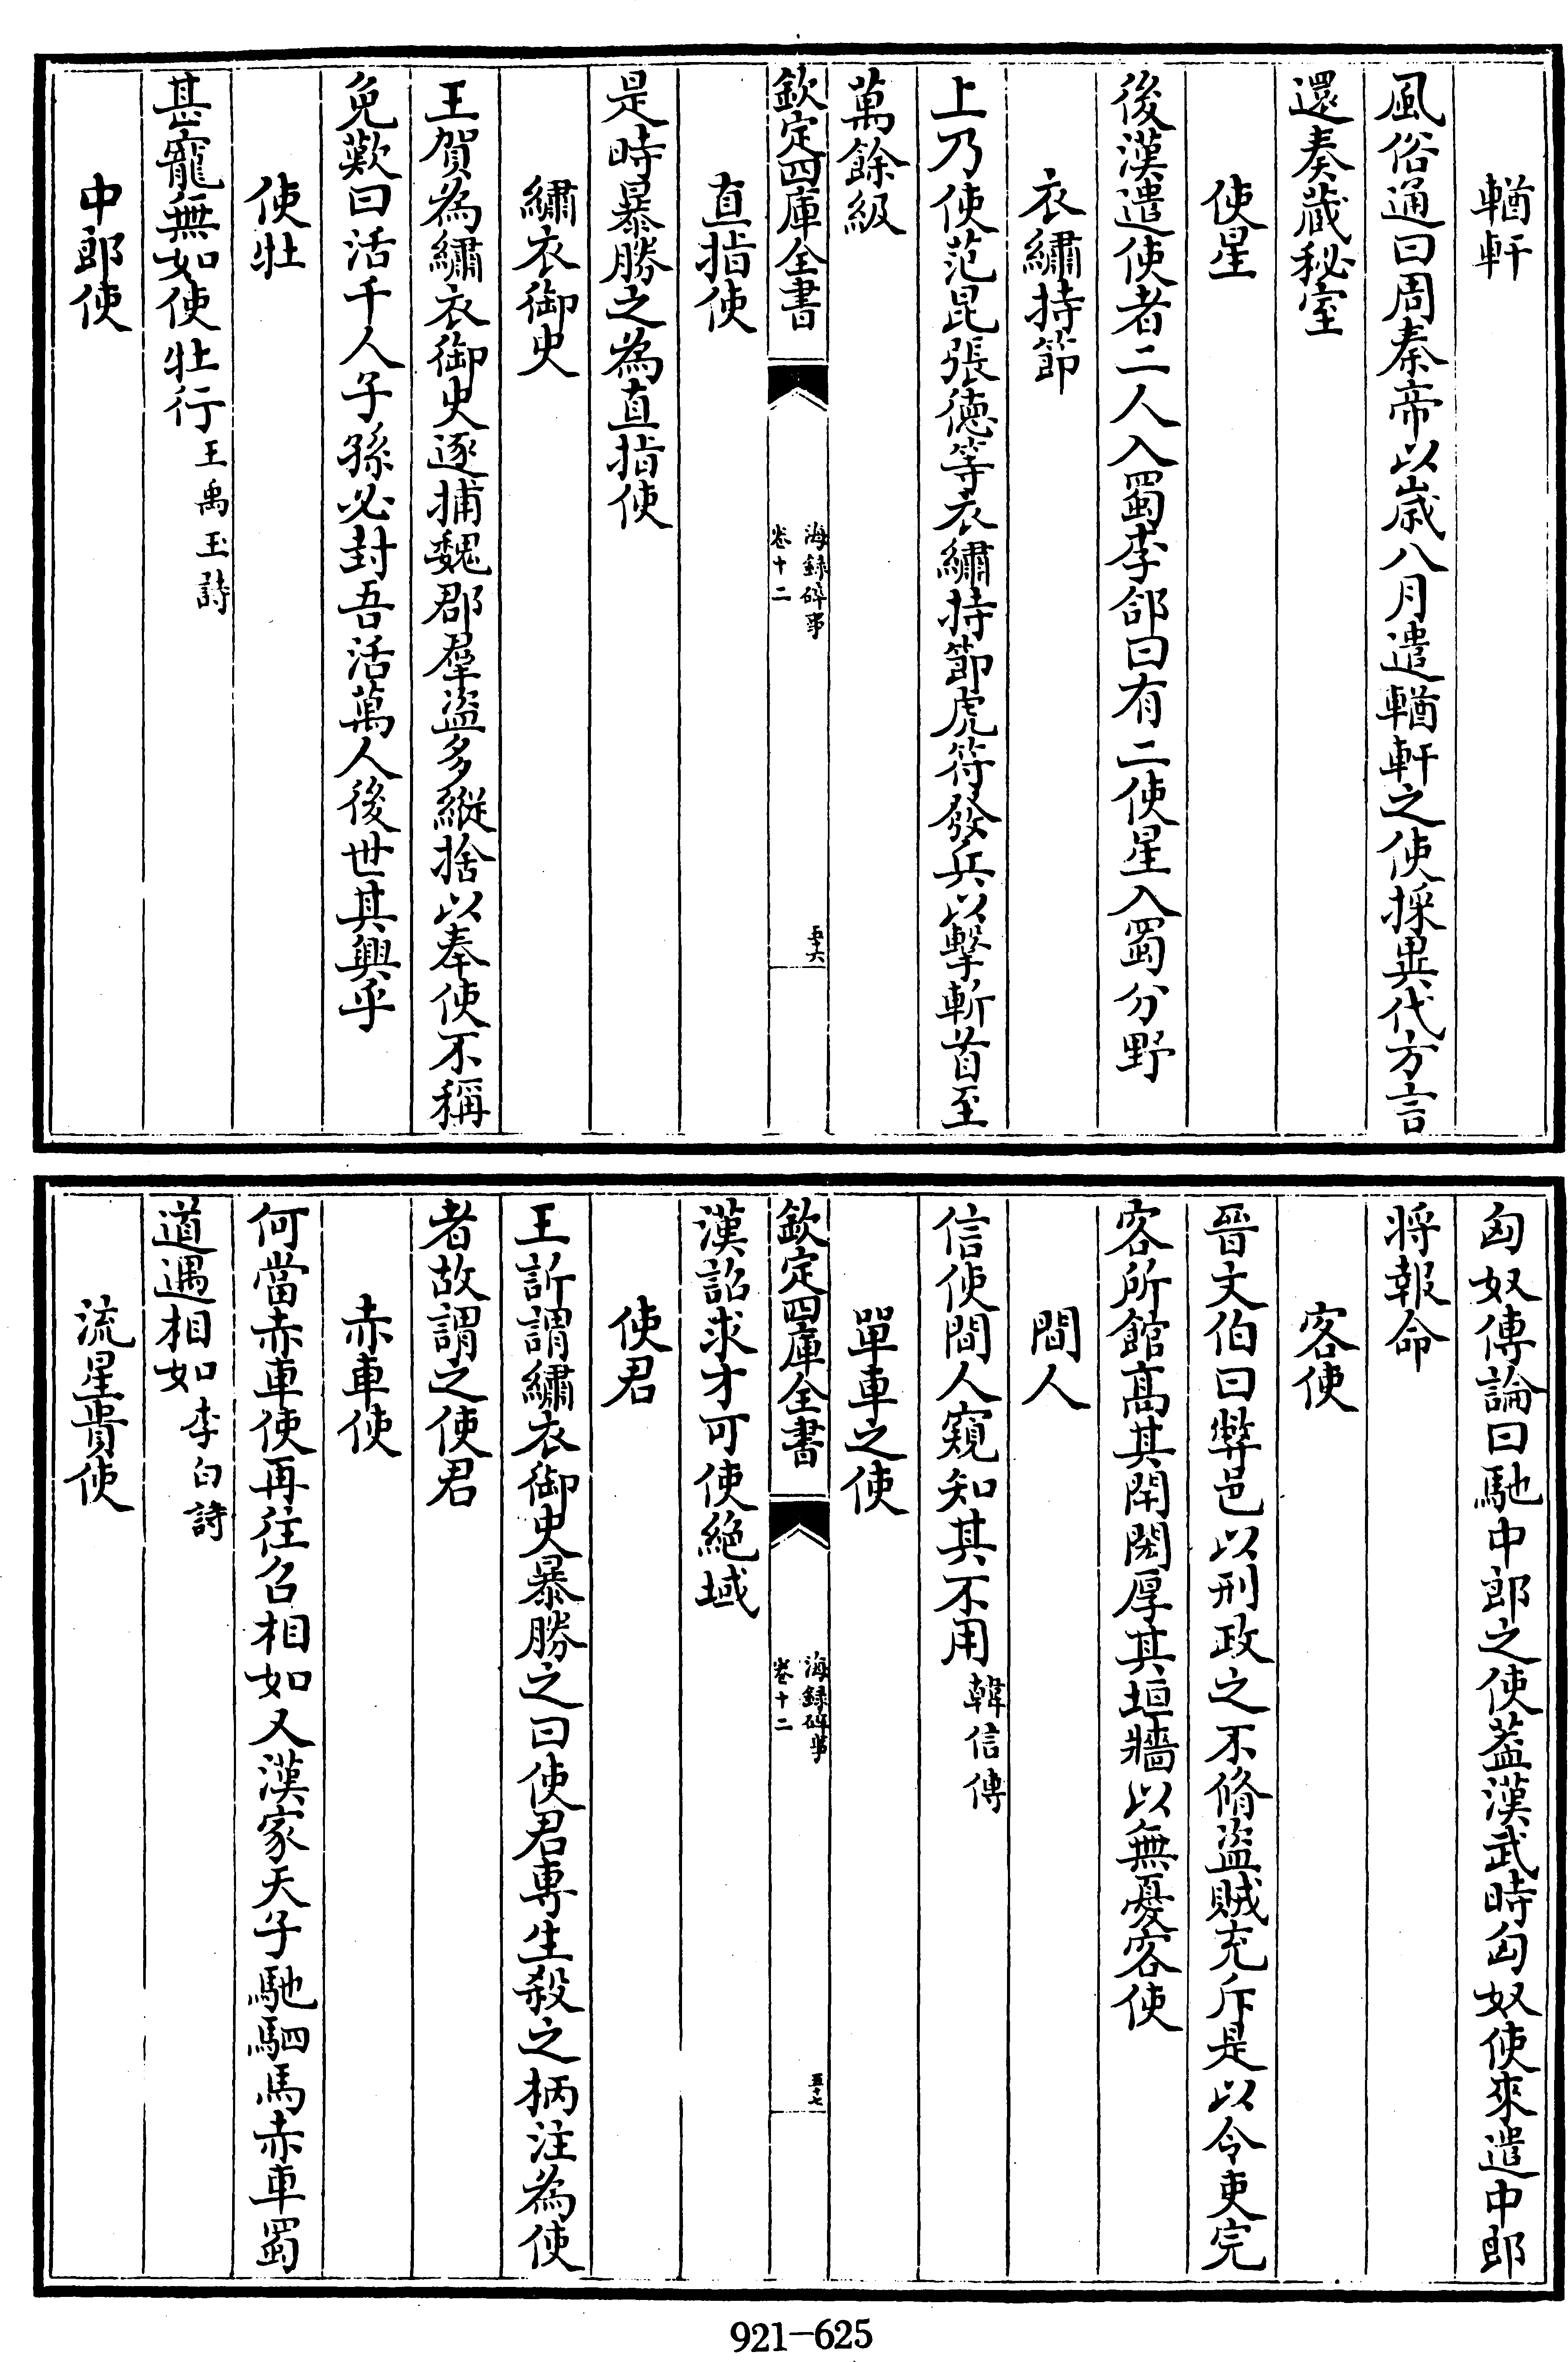 輶軒
風俗通曰周秦帝以歲八月遣輶軒之使採異代方言
還奏藏秘室
使星
後漢遣使者二人入蜀李郃曰有二使星入蜀分野
衣繡持節
上乃使范昆張徳等衣繡持節虎符發兵以擊斬首至
萬餘級
欽定四庫全書
海録碎事
卷十二
五十六
直指使
是時暴勝之為直指使
繡衣御史
王賀為繡衣御史逐捕魏郡羣盜多縱捨以奉使不稱
免歎曰活千人子孫必封吾活萬人後世其興乎
使牡
甚寵無如使牡行王禹玉詩
中郎使
匈奴傳論曰馳中郎之使葢漢武時匈奴使來遣中郎
将報命
客使
晉文伯曰弊邑以刑政之不脩盜賊充斥是以令吏完
客所館髙其閈閎厚其垣牆以無憂客使
間人
信使間人窺知其不用韓信傳
單車之使
欽定四庫全書
海録碎事
卷十二
五十七
漢詔求才可使絶域
使君
王訢謂繡衣御史暴勝之曰使君專生殺之柄注為使
者故謂之使君
赤車使
何當赤車使再往召相如又漢家天子馳駟馬赤車蜀
道遇相如李白詩
流星貴使
921-625